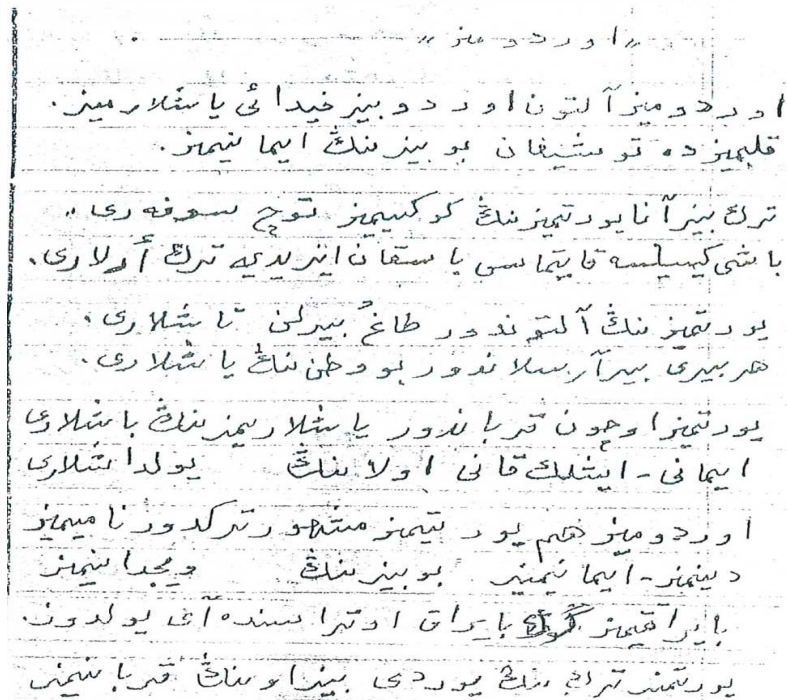 «اوردومیز»
اوردومیز آلتون اوردو بیز فیدائی یاشلارمیز.
قلبمیزده توشیغان بو بیزننڭ ایمانیمز.
ترك بیز آنا یورتمیزننڭ كوكسیمیز توچ سوفەری..
باشی كیسیلسه قایتماسی یاستقان ایزیدیه ترك أرلاری.
یورتمیزننڭ آلتوندور طاغُ بیرلن تاشلاری.
هر بیری بیر آرسلاندور بو وطن ننڭ یاشلاری.
یورتمیز اوچون قرباندور یاشلاریمزننڭ باشلاری
ایمانی-ایشلك قانی اولاننڭ یولداشلاری
اوردومیز هم یورتیمز مشهور تركدور نامیمیز
دینمز-ایمانیمیز بو بیزننڭ ویجدانیمز
بایراقیمیز گوك بایراق اوتراسنده آی یولدوز.
یورتمیز ترك ننڭ یوردی بیز اوننڭ قربانیمیز